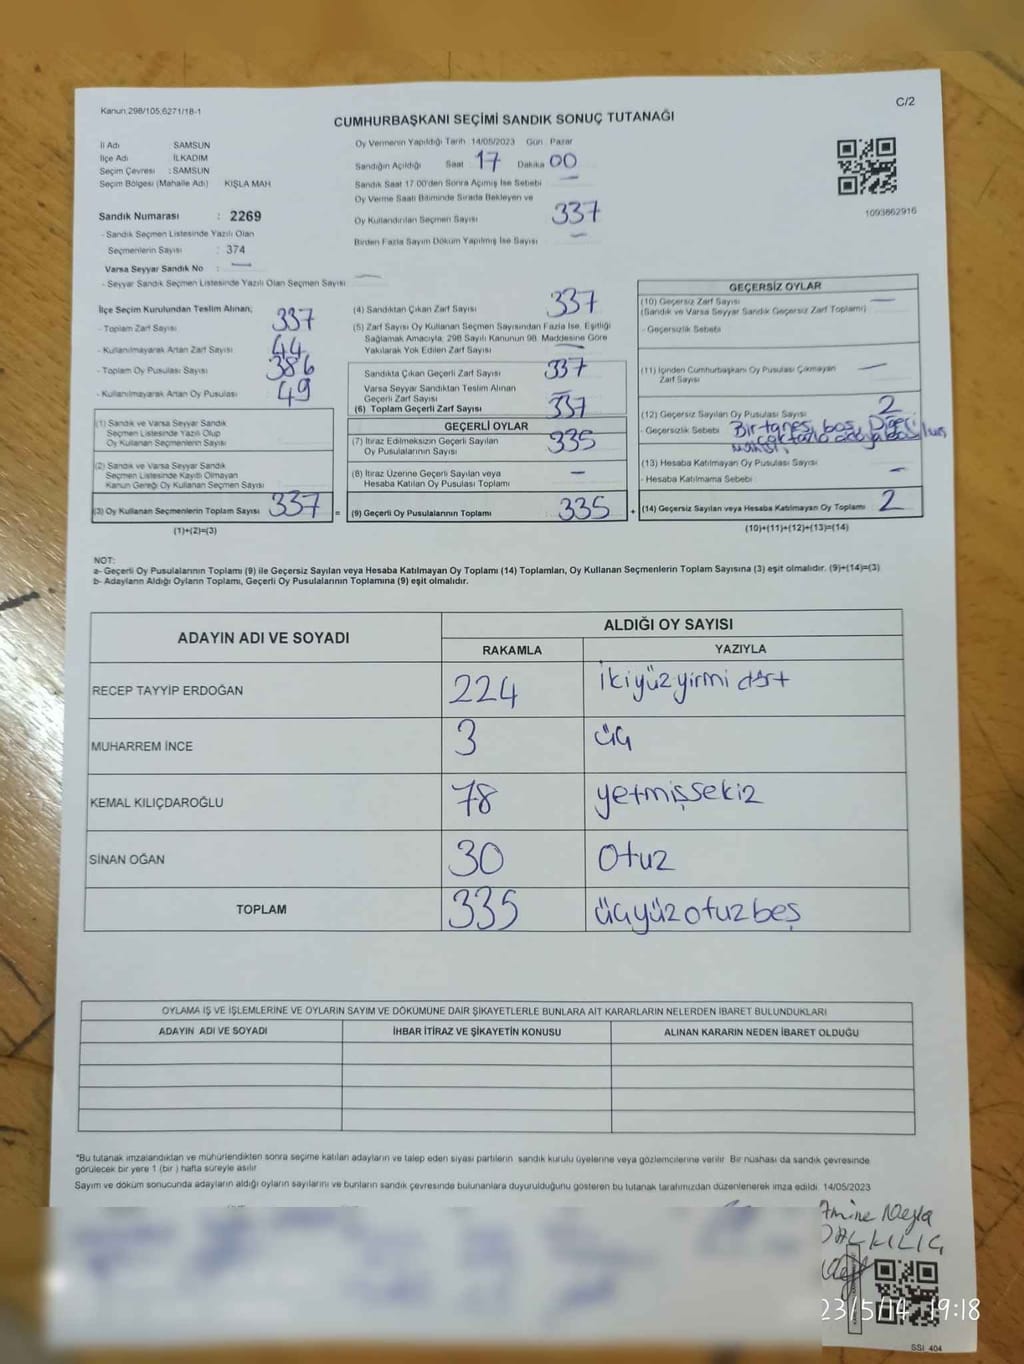 Kanun 298/105,6271/18-1
C/2
CUMHURBAŞKANI SEÇİMİ SANDIK SONUÇ TUTANAĞI
İl Adı SAMSUN
İlçe Adı İLKADIM
Seçim Çevresi : SAMSUN
Seçim Bölgesi (Mahalle Adı) KIŞLA MAH
Sandık Numarası : 2269
- Sandık Seçmen Listesinde Yazılı Olan
Seçmenlerin Sayısı : 374
Varsa Seyyar Sandık No : —
- Seyyar Sandık Seçmen Listesinde Yazılı Olan Seçmen Sayısı —
Oy Vermenin Yapıldığı Tarih 14/05/2023 Gün Pazar
Sandığın Açıldığı Saat 17 Dakika 00
Sandık Saat 17 00'den Sonra Açılmış İse Sebebi —
Oy Verme Saati Bitiminde Sırada Bekleyen ve
Oy Kullandırılan Seçmen Sayısı 337
Birden Fazla Sayım Döküm Yapılmış İse Sayısı —
1093862916
İlçe Seçim Kurulundan Teslim Alınan;
- Toplam Zarf Sayısı 337
- Kullanılmayarak Artan Zarf Sayısı 44
- Toplam Oy Pusulası Sayısı 386
- Kullanılmayarak Artan Oy Pusulası 49
(1) Sandık ve Varsa Seyyar Sandık
Seçmen Listesinde Yazılı Olup
Oy Kullanan Seçmenlerin Sayısı
(2) Sandık ve Varsa Seyyar Sandık
Seçmen Listesinde Kayıtlı Olmayan
Kanun Gereği Oy Kullanan Seçmen Sayısı
(3) Oy Kullanan Seçmenlerin Toplam Sayısı 337 =
(1)+(2)=(3)
(4) Sandıktan Çıkan Zarf Sayısı 337
(5) Zarf Sayısı Oy Kullanan Seçmen Sayısından Fazla İse, Eşitliği
Sağlamak Amacıyla, 298 Sayılı Kanunun 98. Maddesine Göre
Yakılarak Yok Edilen Zarf Sayısı —
Sandıkta Çıkan Geçerli Zarf Sayısı 337
Varsa Seyyar Sandıktan Teslim Alınan
Geçerli Zarf Sayısı —
(6) Toplam Geçerli Zarf Sayısı 337
GEÇERLİ OYLAR
(7) İtiraz Edilmeksizin Geçerli Sayılan
Oy Pusulalarının Sayısı 335
(8) İtiraz Üzerine Geçerli Sayılan veya
Hesaba Katılan Oy Pusulası Toplamı —
(9) Geçerli Oy Pusulalarının Toplamı 335 +
GEÇERSİZ OYLAR
(10) Geçersiz Zarf Sayısı —
(Sandık ve Varsa Seyyar Sandık Geçersiz Zarf Toplamı)
- Geçersizlik Sebebi
(11) İçinden Cumhurbaşkanı Oy Pusulası Çıkmayan
Zarf Sayısı —
(12) Geçersiz Sayılan Oy Pusulası Sayısı 2
- Geçersizlik Sebebi Bir tanesi boş, Diğeri
çok fazla
(13) Hesaba Katılmayan Oy Pusulası Sayısı
- Hesaba Katılmama Sebebi —
(14) Geçersiz Sayılan veya Hesaba Katılmayan Oy Toplamı 2
(10)+(11)+(12)+(13)=(14)
NOT:
a- Geçerli Oy Pusulalarının Toplamı (9) ile Geçersiz Sayılan veya Hesaba Katılmayan Oy Toplamı (14) Toplamları, Oy Kullanan Seçmenlerin Toplam Sayısına (3) eşit olmalıdır. (9)+(14)=(3)
b- Adayların Aldığı Oyların Toplamı, Geçerli Oy Pusulalarının Toplamına (9) eşit olmalıdır.
ADAYIN ADI VE SOYADI ALDIĞI OY SAYISI
RAKAMLA YAZIYLA
RECEP TAYYİP ERDOĞAN 224 ikiyüzyirmi dört
MUHARREM İNCE 3 üç
KEMAL KILIÇDAROĞLU 78 yetmişsekiz
SİNAN OĞAN 30 otuz
TOPLAM 335 üçyüzotuzbeş
OYLAMA İŞ VE İŞLEMLERİNE VE OYLARIN SAYIM VE DÖKÜMÜNE DAİR ŞİKAYETLERLE BUNLARA AİT KARARLARIN NELERDEN İBARET BULUNDUKLARI
ADAYIN ADI VE SOYADI İHBAR İTİRAZ VE ŞİKAYETİN KONUSU ALINAN KARARIN NEDEN İBARET OLDUĞU
*Bu tutanak imzalandıktan ve mühürlendikten sonra seçime katılan adayların ve talep eden siyasi partilerin sandık kurulu üyelerine veya gözlemcilerine verilir. Bir nüshası da sandık çevresinde
görülecek bir yere 1 (bir ) hafta süreyle asılır
Sayım ve döküm sonucunda adayların aldığı oyların sayılarını ve bunların sandık çevresinde bulunanlara duyurulduğunu gösteren bu tutanak tarafımızdan düzenlenerek imza edildi. 14/05/2023
Emine Neyla
DALKILIÇ
23/5/14 19:18
SSİ_404